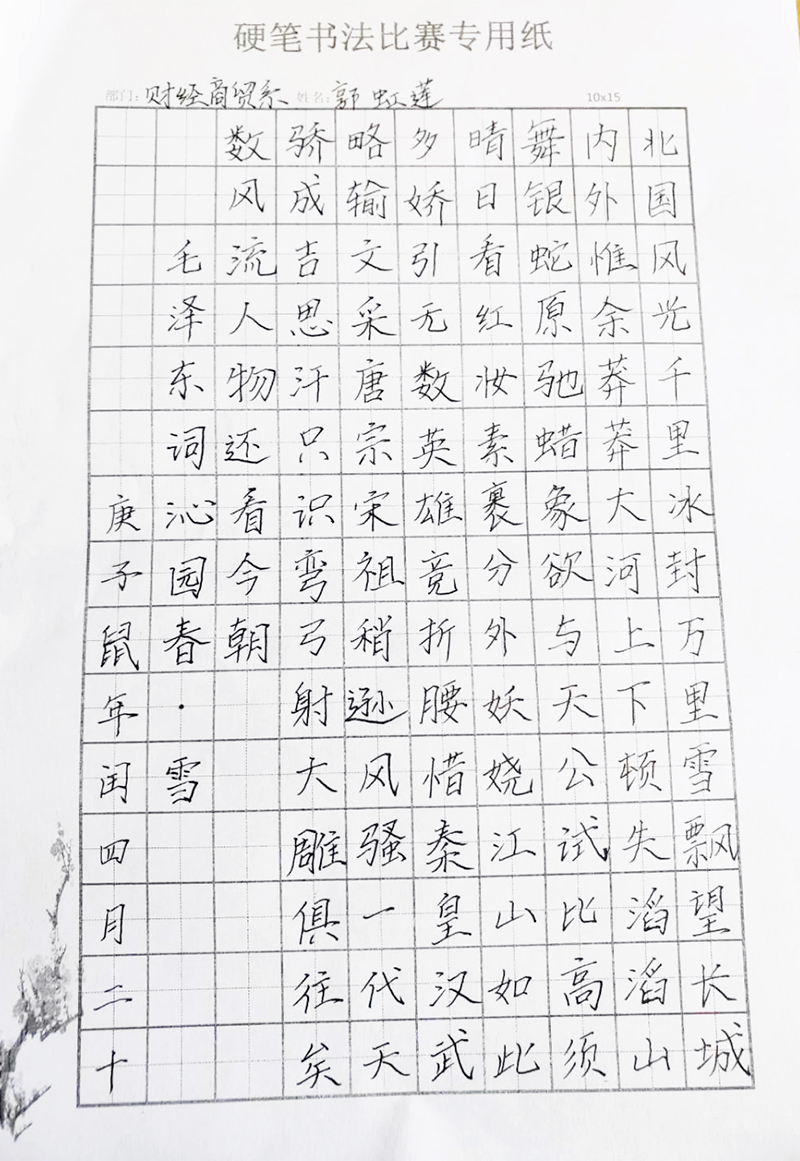 硬笔书法比赛专用纸
部门：财经商贸系 姓名：郭虹莲 10x15
北国风光千里冰封万里雪飘望长城
内外惟余莽莽大河上下顿失滔滔山
舞银蛇原驰蜡象欲与天公试比高须
晴日看红妆素裹分外妖娆江山如此
多娇引无数英雄竞折腰惜秦皇汉武
略输文采唐宗宋祖稍逊风骚一代天
骄成吉思汗只识弯弓射大雕俱往矣
数风流人物还看今朝
毛泽东词沁园春·雪
庚子鼠年闰四月二十